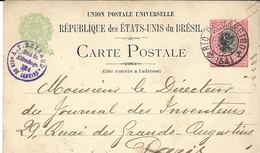 UNION POSTALE UNIVERSELLE
RÉPUBLIQUE des ÉTATS-UNIS du BRÉSIL
CARTE POSTALE
(Côté réservé à l'adresse)
Monsieur le Directeur
du Journal des Inventeurs
29, Quai des Grands-Augustins
Paris